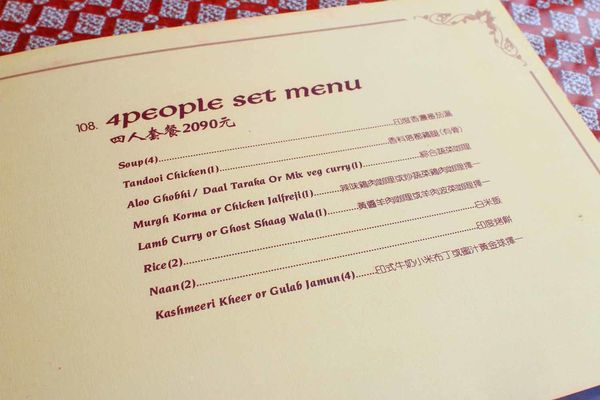 108. 4people set menu
四人套餐2090元
Soup(4)..........印度香濃蕃茄湯
Tandooi Chicken(1)..........香料塔都雞腿(有骨)
Aloo Ghobhi / Daal Taraka Or Mix veg curry(1)..........綜合蔬菜咖哩
Murgh Korma or Chicken Jalfreji(1)..........辣味雞肉咖哩或炒蔬菜雞肉咖哩擇一
Lamb Curry or Ghost Shaag Wala(1)..........黃醬羊肉咖哩或羊肉波菜咖哩擇一
Rice(2)..........白米飯
Naan(2)..........印度烤餅
Kashmeeri Kheer or Gulab Jamun(4)..........印式牛奶小米布丁或蜜汁黃金球擇一